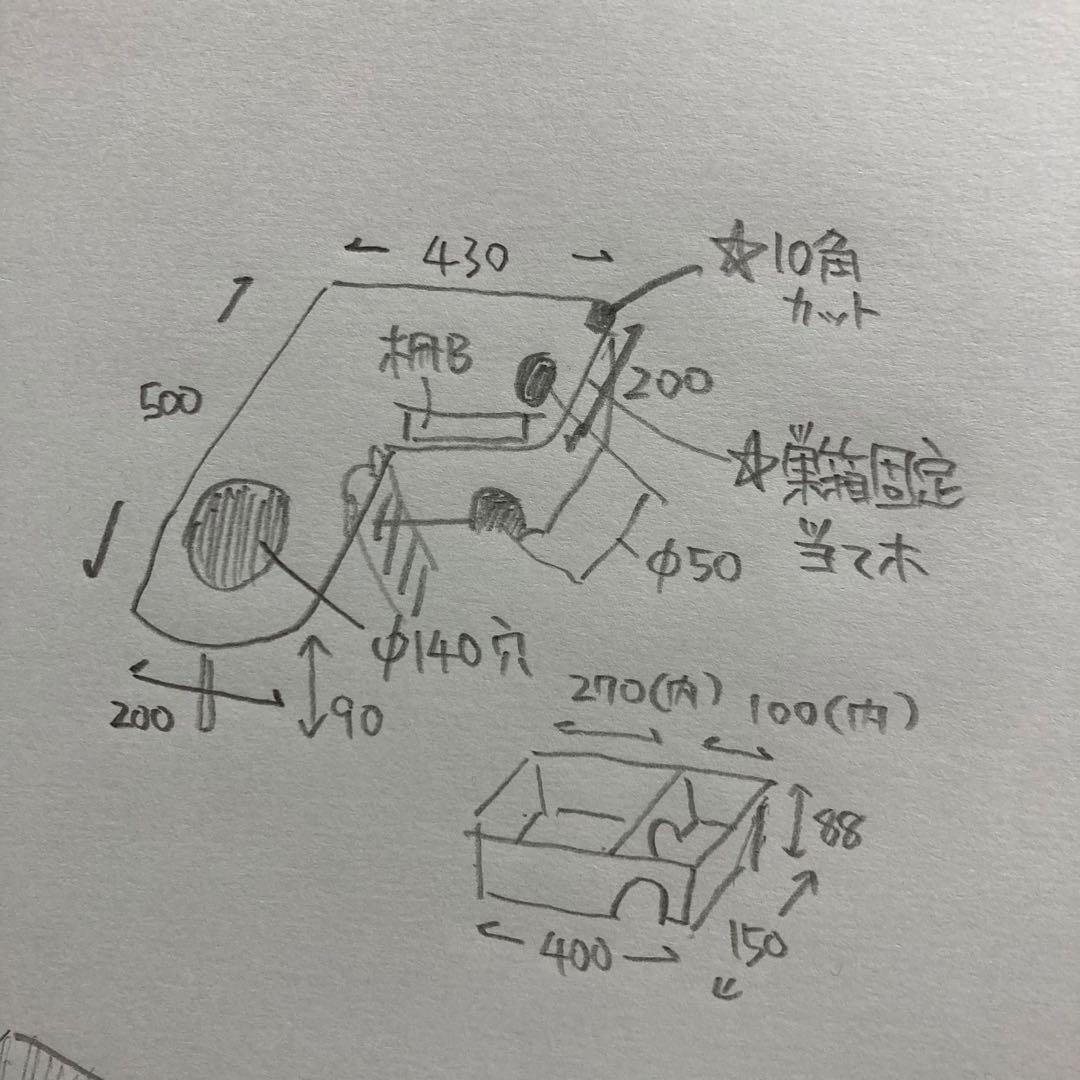 430
☆10角
カット
棚B
500
200
☆巣箱固定
当て木
φ50
φ140穴
200
90
270(内)
100(内)
88
150
400